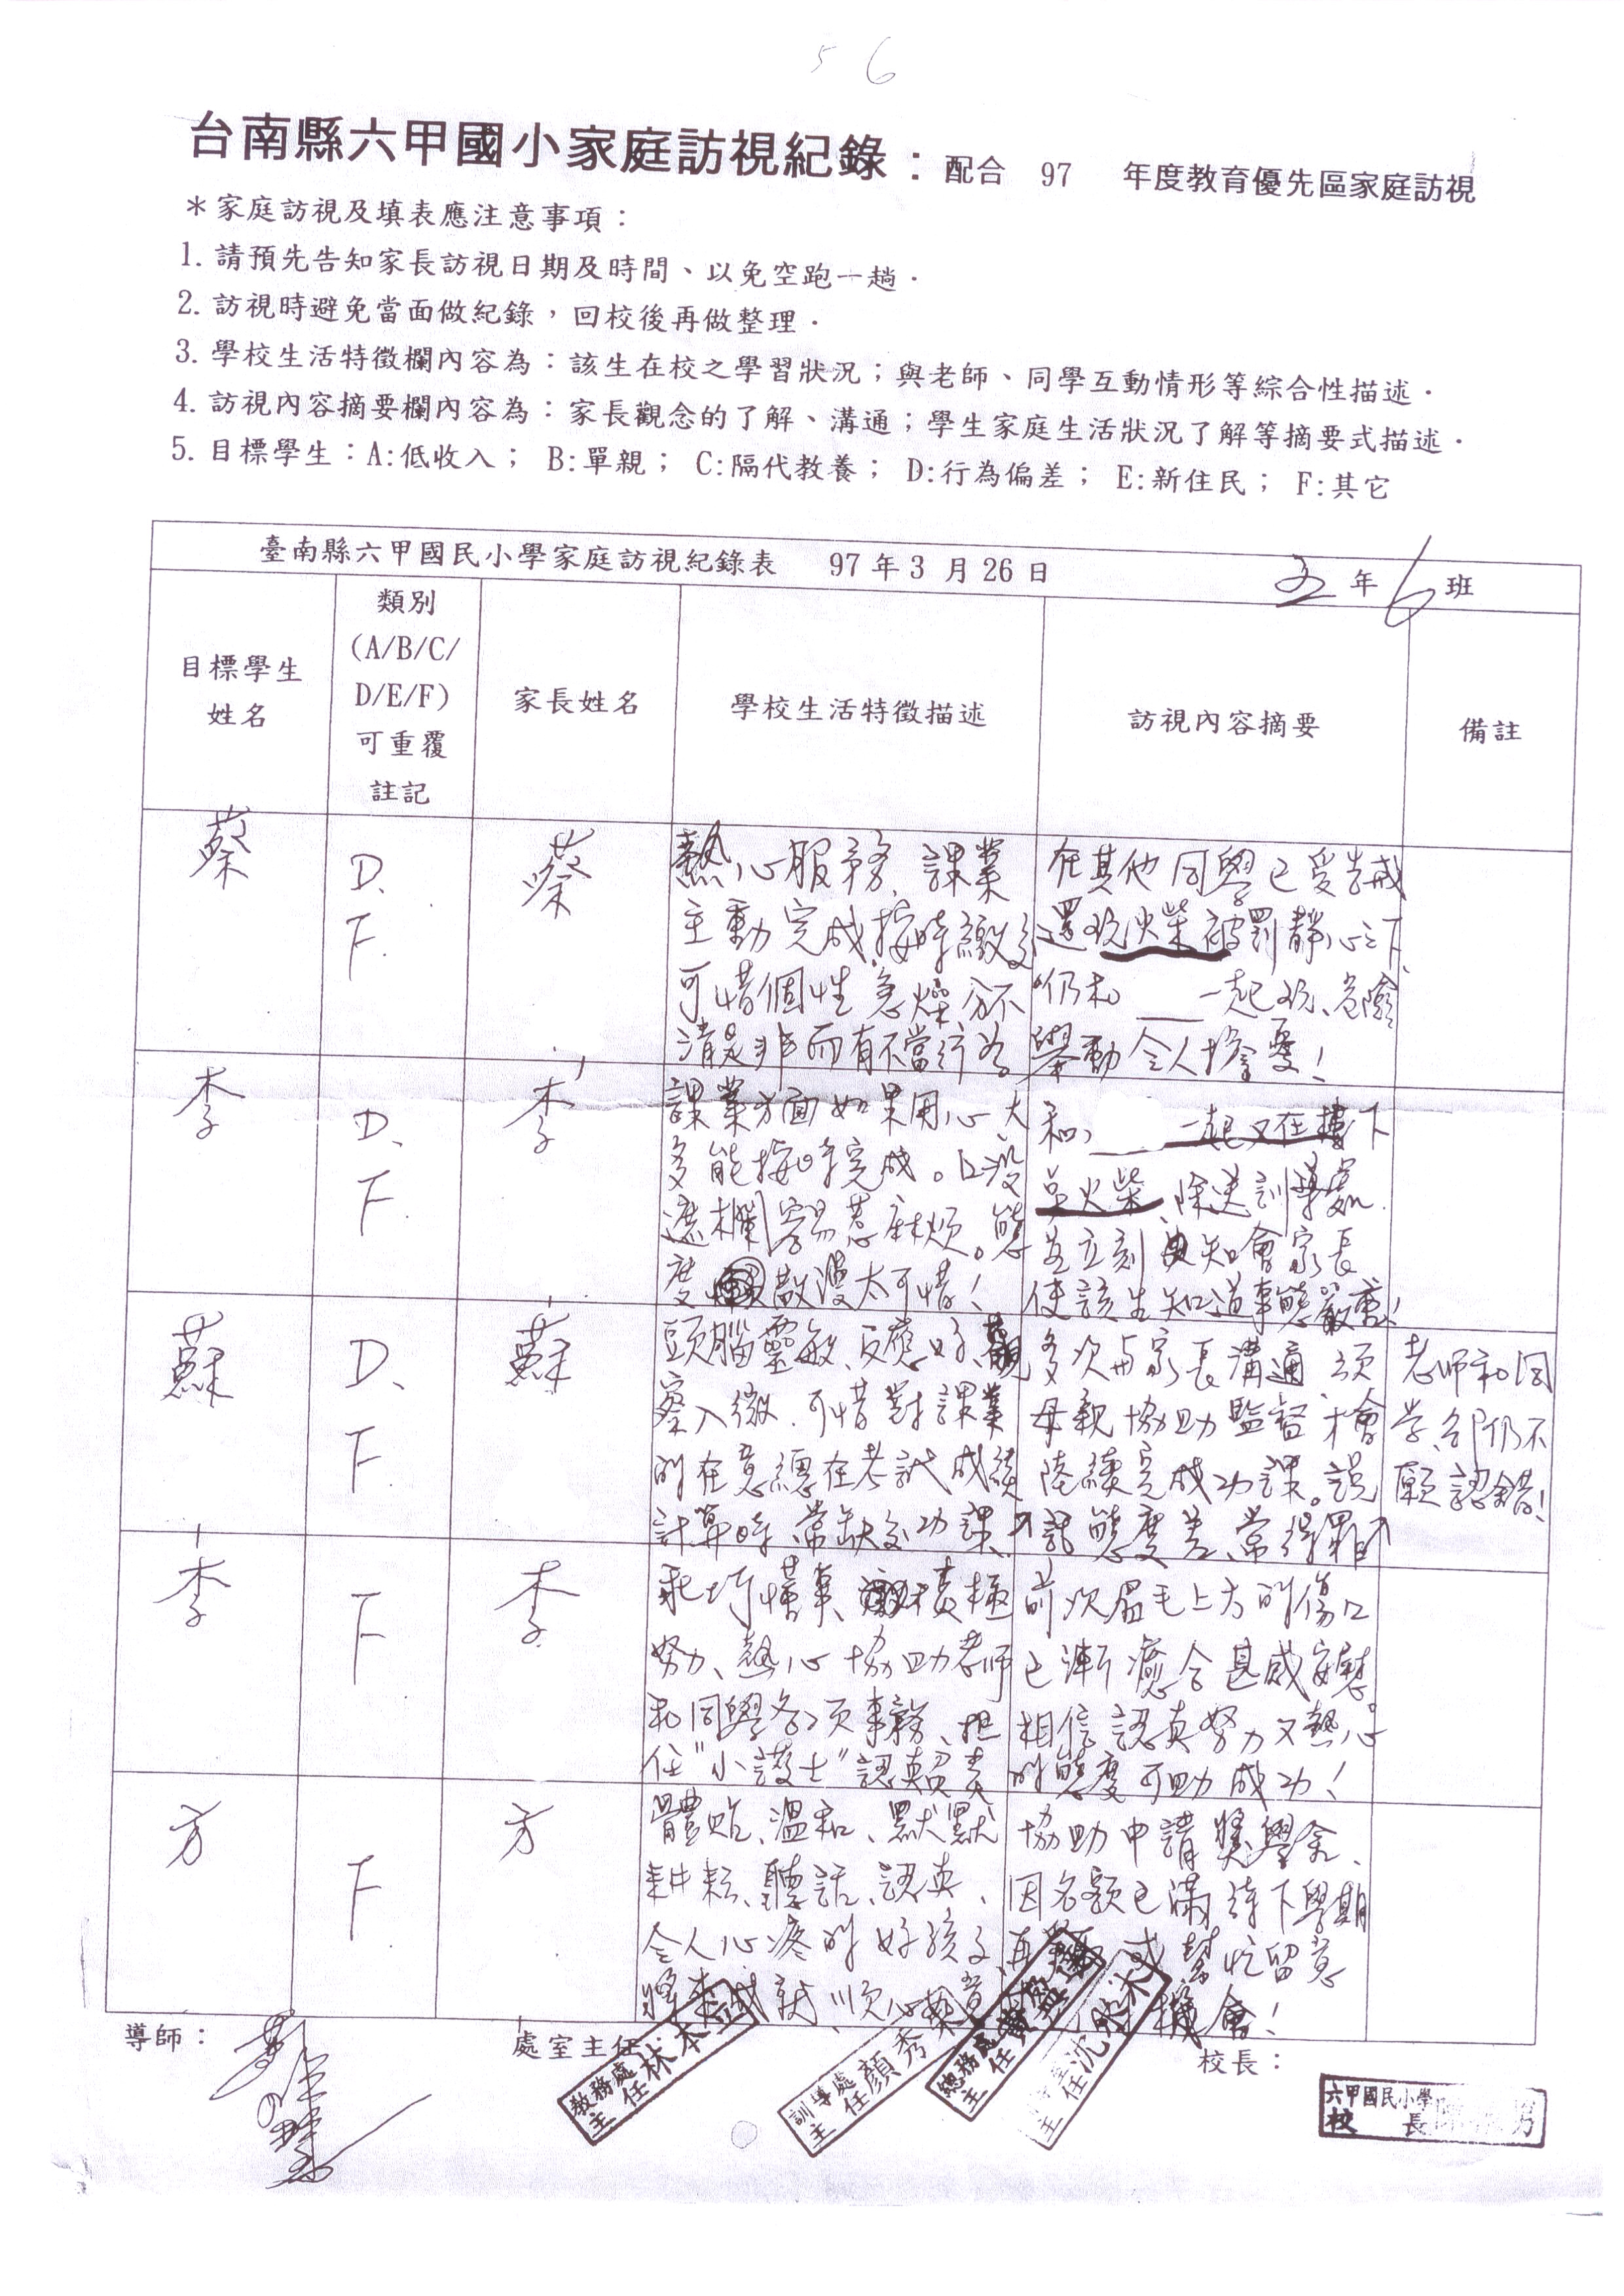 56
台南縣六甲國小家庭訪視紀錄：配合 97 年度教育優先區家庭訪視
＊家庭訪視及填表應注意事項：
1. 請預先告知家長訪視日期及時間、以免空跑一趟．
2. 訪視時避免當面做紀錄，回校後再做整理．
3. 學校生活特徵欄內容為：該生在校之學習狀況；與老師、同學互動情形等綜合性描述．
4. 訪視內容摘要欄內容為：家長觀念的了解、溝通；學生家庭生活狀況了解等摘要式描述．
5. 目標學生：A:低收入； B:單親； C:隔代教養； D:行為偏差； E:新住民； F:其它
臺南縣六甲國民小學家庭訪視紀錄表 97 年 3 月 26 日 五 年 6 班
目標學生
姓名
類別
(A/B/C/
D/E/F)
可重覆
註記
家長姓名
學校生活特徵描述
訪視內容摘要
備註
蔡
D、
F.
蔡
熱心服務、課業
主動完成按時繳交
可惜個性急燥分不
清是非而有不當行為
在其他同學已受告誡
還玩火柴被罰靜心之下
仍和 一起玩、危險
舉動令人擔憂！
李
D、
F.
李
課業方面如果用心大
多能按時完成。口沒
遮欄容易惹麻煩。態
度散漫太可惜！
和 一起又在樓下
玩火柴、除送訓導處
並立刻知會家長
使該生知道事態嚴重！
蘇
D、
F.
蘇
頭腦靈敏、反應好、觀
察入微、可惜對課業
的在意總在考試成績
計算時、常缺交功課、
多次與家長溝通、須
母親協助監督才會
陸續完成功課。說
話態度差、常得罪
老師和同
學、卻仍不
願認錯！
李
F
李
乖巧懂事、積極
努力、熱心協助老師
和同學各項事務、担
任"小護士"認真負責
前次眉毛上方的傷口
已漸癒合甚感安慰。
相信認真努力又熱心
的態度可助成功！
方
F
方
體貼、溫和、默默
耕耘、聽話、認真、
令人心疼的好孩子
將來成就順心如意
協助申請獎學金、
因名額已滿待下學期
再 或幫忙留意
機會！
導師：
處室主任：
教務處
主任林本
訓導處
主任顏秀
總務處
主任
主任沈
校長：
六甲國民小學
校長陳 男